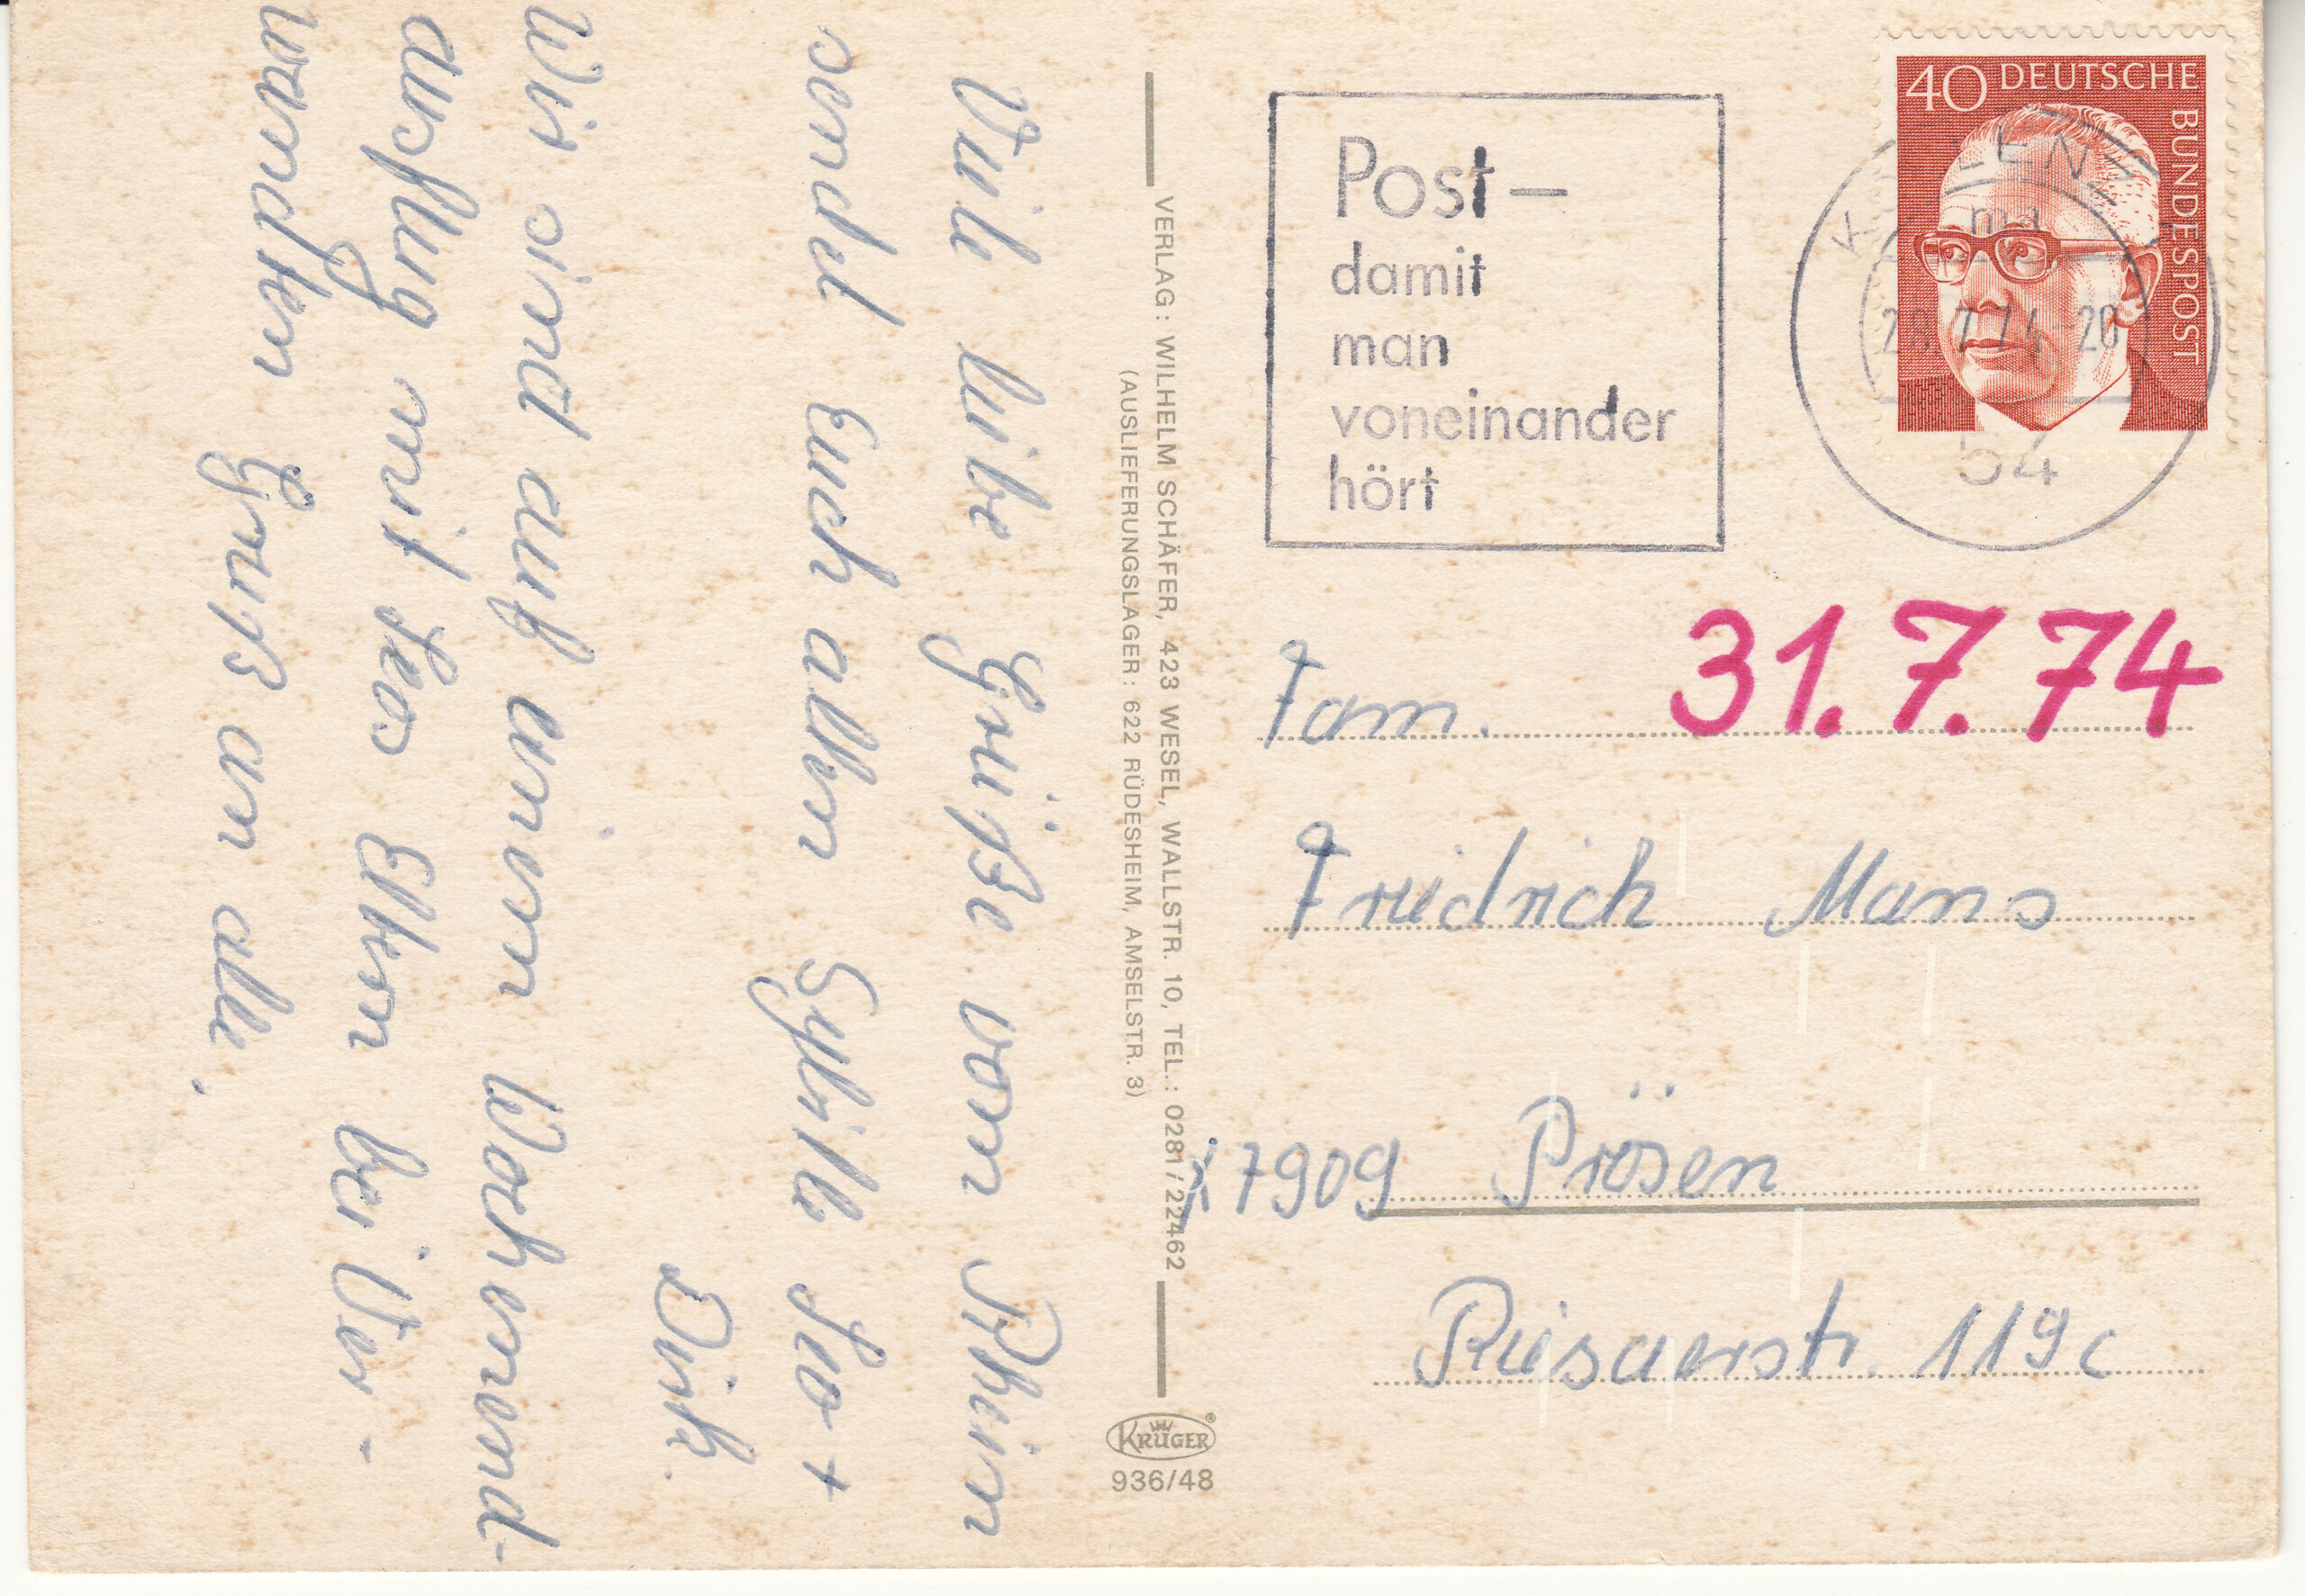 Viele liebe Grüße vom Rhein
sendet Euch allen Sybille Leo +
Dirk.
Wir sind auf einem Wochenend-
ausflug mit Leos Eltern bei Ver-
wandten Gruß an alle.
VERLAG: WILHELM SCHÄFER, 423 WESEL, WALLSTR. 10, TEL.: 0281/22462
(AUSLIEFERUNGSLAGER: 622 RÜDESHEIM, AMSELSTR. 3)
KRÜGER®
936/48
Post-
damit
man
voneinander
hört
40 DEUTSCHE BUNDESPOST
ma
28.7.74-20
54
31.7.74
Fam.
Friedrich Mans
7909 Prösen
Riesaerstr. 119c